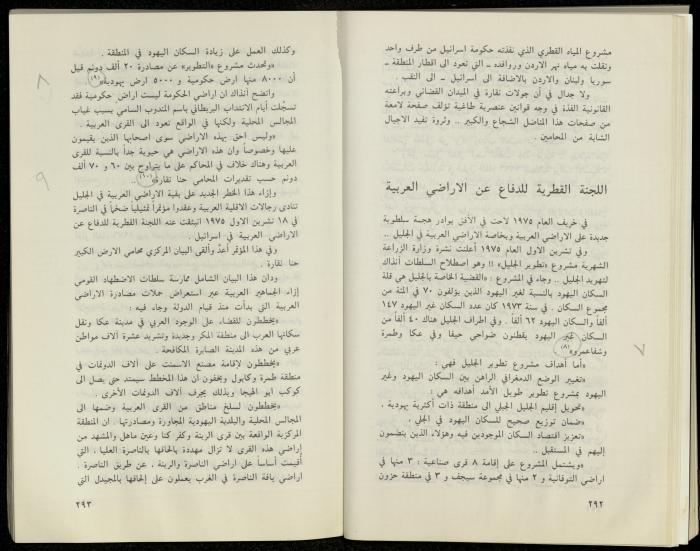 مشروع المياه القطري الذي نفذته حكومة اسرائيل من طرف واحد
ونقلت به مياه نهر الاردن وروافده ـ التي تعود الى اقطار المنطقة ـ
سوريا ولبنان والاردن بالاضافة الى اسرائيل ـ الى النقب .
ولا جدال في أن جولات نقارة في الميدان القضائي وبراعته
القانونية الفذة في وجه قوانين عنصرية طاغية تؤلف صفحة لامعة
من صفحات هذا المناضل الشجاع والكبير .. وثروة تفيد الاجيال
الشابة من المحامين .
اللجنة القطرية للدفاع عن الاراضي العربية
في خريف العام ١٩٧٥ لاحت في الأفق بوادر هجمة سلطوية
جديدة على الاراضي العربية وبخاصة الاراضي العربية في الجليل ..
وفي تشرين الاول العام ١٩٧٥ أعلنت نشرة وزارة الزراعة
الشهرية مشروع «تطوير الجليل» !! وهو اصطلاح السلطات آنذاك
لتهويد الجليل .. وجاء في المشروع : «القضية الخاصة بالجليل هي قلة
السكان اليهود بالنسبة لغير اليهود الذين يؤلفون ٧٠ في المئة من
مجموع السكان . في سنة ١٩٧٣ كان عدد السكان غير اليهود ١٤٧
ألفاً والسكان اليهود ٦٢ ألفاً . وفي اطراف الجليل هناك ٤٠ ألفاً من
السكان غير اليهود يقطنون ضواحي حيفا وفي عكا وطمرة
وشفاعمرو» (٨)
٧
«أما أهداف مشروع تطوير الجليل فهي :
«تغيير الوضع الدمغرافي الراهن بين السكان اليهود وغير
اليهود بمشروع تطوير طويل الأمد أهدافه هي :
«تحويل إقليم الجليل الجبلي الى منطقة ذات أكثرية يهودية .
«ضمان توزيع صحيح للسكان اليهود في الجلي
«تعزيز اقتصاد السكان الموجودين فيه وهؤلاء الذين ينضمون
إليهم في المستقبل ..
«ويشتمل المشروع على إقامة ٨ قرى صناعية : ٣ منها في
اراضي التوفانية و ٢ منها في مجموعة سيجف و ٣ في منطقة حزون
٢٩٢
وكذلك العمل على زيادة السكان اليهود في المنطقة .
«وتحدث مشروع «التطوير» عن مصادرة ٢٠ ألف دونم قيل
أن ٨٠٠٠ منها ارض حكومية و ٥٠٠٠ ارض يهودية» (٩)
٨
واتضح آنذاك ان اراضي الحكومة ليست اراض حكومية فقد
تسجلت أيام الانتداب البريطاني باسم المندوب السامي بسبب غياب
المجالس المحلية ولكنها في الواقع تعود الى القرى العربية .
«وليس احق بهذه الاراضي سوى اصحابها الذين يقيمون
عليها وخصوصاً وان هذه الاراضي هي حيوية جداً بالنسبة للقرى
العربية وهناك خلاف في المحاكم على ما يتراوح بين ٦٠ و ٧٠ ألف
دونم حسب تقديرات المحامي حنا نقارة» (١٠) ..
٩
وإزاء هذا الخطر الجديد على بقية الاراضي العربية في الجليل
تنادى رجالات الاقلية العربية وعقدوا مؤتمراً تمثيلياً ضخماً في الناصرة
في ١٨ تشرين الاول ١٩٧٥ انبثقت عنه اللجنة القطرية للدفاع عن
الاراضي العربية في اسرائيل .
وفي هذا المؤتمر أعدّ وألقى البيان المركزي محامي الارض الكبير
حنا نقارة .
ودان هذا البيان الشامل ممارسة سلطات الاضطهاد القومي
إزاء الجماهير العربية عبر استعراض حملات مصادرة الاراضي
العربية التي بدأت منذ قيام الدولة وجاء فيه :
«يخططون للقضاء على الوجود العربي في مدينة عكا ونقل
سكانها العرب الى منطقة المكر وجديدة وتشريد عشرة آلاف مواطن
عربي من هذه المدينة الصابرة المكافحة .
«يخططون لإقامة مصنع الاسمنت على آلاف الدونمات في
منطقة طمرة وكابول ويخفون ان هذا المخطط سيمتد حتى يصل الى
كوكب ابو الهيجا وبذلك يجرف آلاف الدونمات الأخرى .
«يخططون لسلخ مناطق من القرى العربية وضمها الى
المجالس المحلية والبلدية اليهودية المجاورة ومصادرتها . ان المنطقة
المركزية الواقعة بين قرى الرينة وكفر كنا وعين ماهل والمشهد من
إراضي هذه القرى لا تزال مهددة بالحاقها بالناصرة العليا ، التي
أقيمت أساساً على اراضي الناصرة والرينة . عن طريق الناصرة .
اراضي يافة الناصرة في الغرب يعملون على إلحاقها بالمجيدل التي
٢٩٣